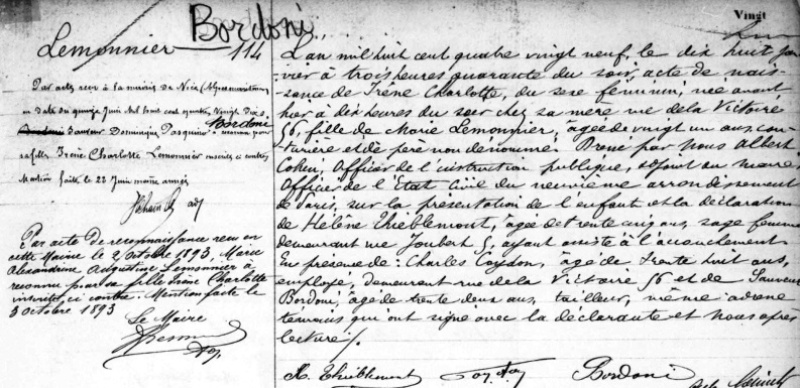 Vingt
Bordoni
Lemonnier
114
Par acte reçu à la mairie de Nice (Alpes maritimes)
en date du quinze Juin mil huit cent quatre Vingt dix
Bordoni
Sauveur Dominique Pasquino a reconnu pour
sa fille Irène Charlotte Lemonnier inscrite ci contre
Mention faite le 23 Juin même année
Par acte de reconnaissance reçu en
cette Mairie le 2 Octobre 1893, Marie
Alexandrine Augustine Lemonnier a
reconnu pour sa fille Irène Charlotte
inscrite ci contre. Mention faite le
3 Octobre 1893
Le Maire
L'an mil huit cent quatre vingt neuf, le dix huit jan
vier à trois heures quarante du soir, acte de nais-
sance de Irène Charlotte, du sexe féminin, née avant
hier à dix heures du soir chez sa mère rue de la Victoire
56, fille de Marie Lemonnier, âgée de vingt un ans, cou-
turière et de père non dénommé. Dressé par Nous Albert
Cohen, Officier de l'instruction publique, adjoint au maire,
Officier de l'Etat Civil du neuvième arrondissement
de Paris, sur la présentation de l'enfant et la déclaration
de Hélène Thieblemont, âgée de trente cinq ans, sage femme
demeurant rue Joubert 5, ayant assisté à l'accouchement
En présence de: Charles Coydon, âgé de trente huit ans,
employé, demeurant rue de la Victoire 56 et de Sauveur
Bordoni, âgé de trente deux ans, tailleur, même adresse
témoins qui ont signé avec la déclarante et Nous après
lecture /.
H. Thieblemont
Bordoni